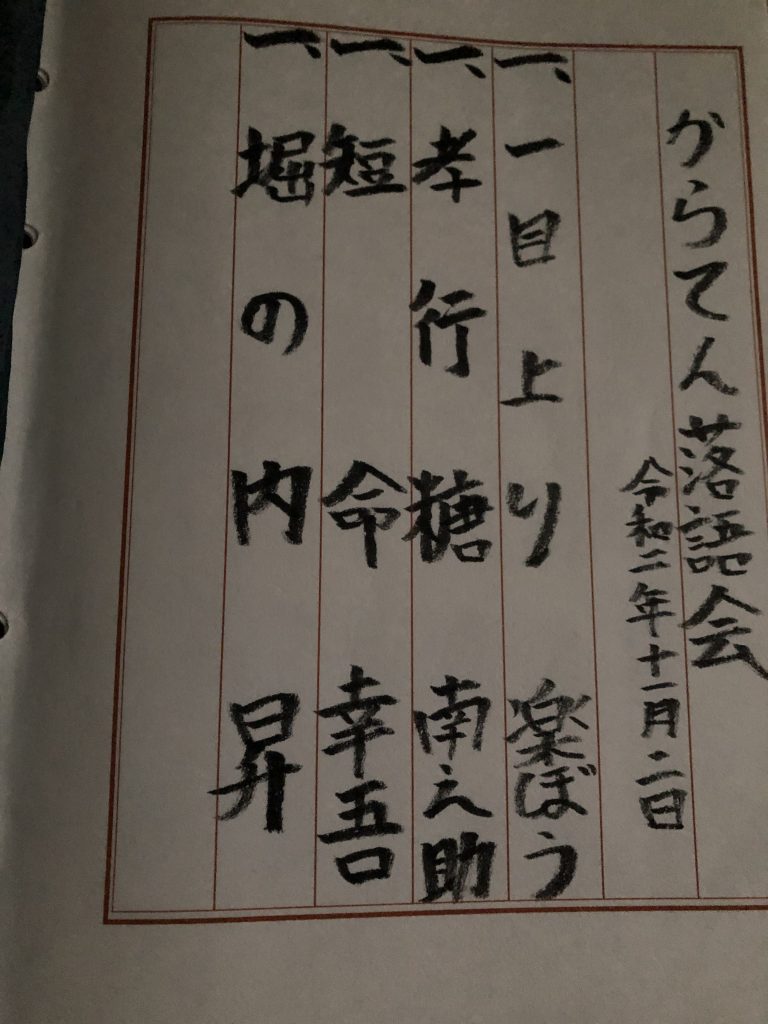 からてん落語会
令和二年十一月二日
一、一目上り 楽ぼう
一、孝行糖 南之助
一、短命 幸吾
一、堀の内 昇